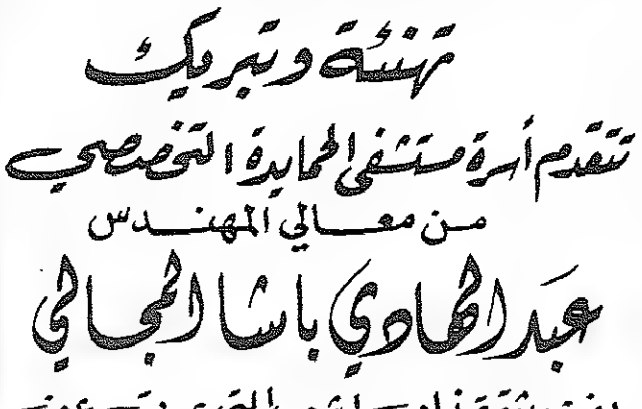 تهنئة وتبريك
تتقدم أسرة مستشفى الحمايدة التخصصي
من معالي المهندس
عبد الهادي باشا المجالي